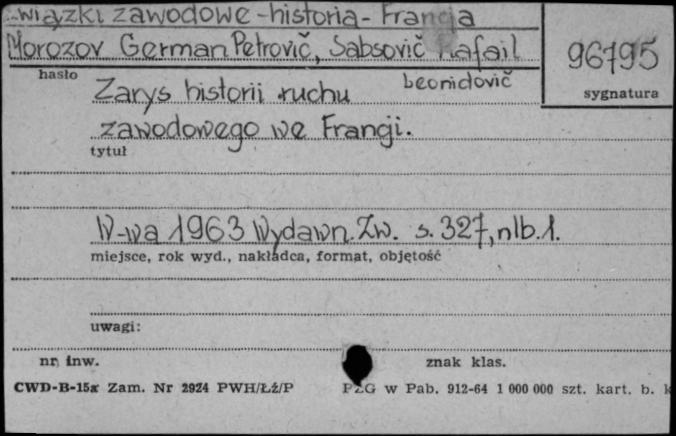 Związki zawodowe - historia - Francja
Morozov German Petrovič, Sabsovič Rafail
Leonidovič
96795
hasło
sygnatura
Zarys historii ruchu
zawodowego we Francji.
tytuł
W-wa 1963 Wydawn. Zw. s. 327, nlb. 1.
miejsce, rok wyd., nakładca, format, objętość
uwagi:
nr. inw.
znak klas.
CWD-B-15a Zam. Nr 2924 PWH/Łź/P
PZG w Pab. 912-64 1 000 000 szt. kart. b. k